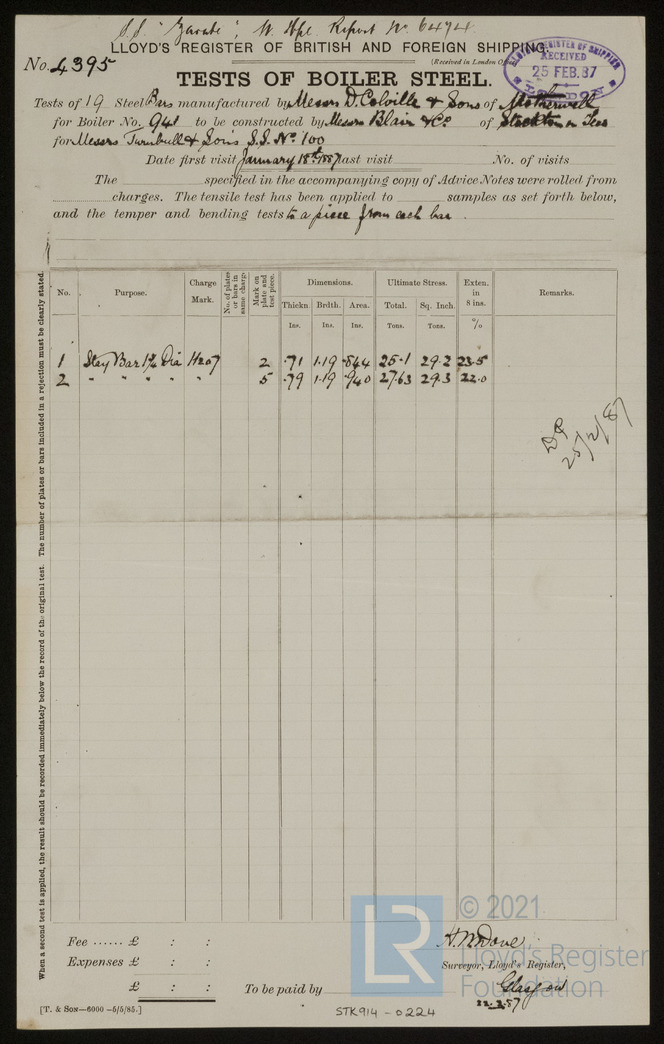 S.S. "Zarate", W. Hpl. Report No. 6474
LLOYD'S REGISTER OF BRITISH AND FOREIGN SHIPPING.
No. 4395
(Received in London Office
RECEIVED
25 FEB. 87
TESTS OF BOILER STEEL.
Tests of 19 Steel Bars manufactured by Messrs D. Colville & Sons of Motherwell
for Boiler No. 941 to be constructed by Messrs Blair & Co. of Stockton on Tees
for Messrs Turnbull & Sons S.S. No. 100
Date first visit January 18th 1887 last visit No. of visits
The specified in the accompanying copy of Advice Notes were rolled from
charges. The tensile test has been applied to samples as set forth below,
and the temper and bending tests to a piece from each bar.
When a second test is applied, the result should be recorded immediately below the record of the original test. The number of plates or bars included in a rejection must be clearly stated.
No. Purpose. Charge Mark. No. of plates or bars in same charge. Mark on plate and test piece. Dimensions. Ultimate Stress. Exten. in 8 ins. Remarks.
Thickn. Brdth. Area. Total. Sq. Inch.
Ins. Ins. Ins. Tons. Tons. %
1 Stay Bar 1¾ Dia H207 2 .71 1.19 .844 25.1 29.2 23.5
2 " " " " " 5 .79 1.19 .940 27.63 29.3 22.0
25/2/87
Fee ...... £ : :
Expenses £ : :
£ : :
To be paid by
Surveyor, Lloyd's Register,
Glasgow
22.2.87
[T. & Son—6000 —5/5/85.]
STK914-0224
LR
© 2021
Lloyd's Register
Foundation